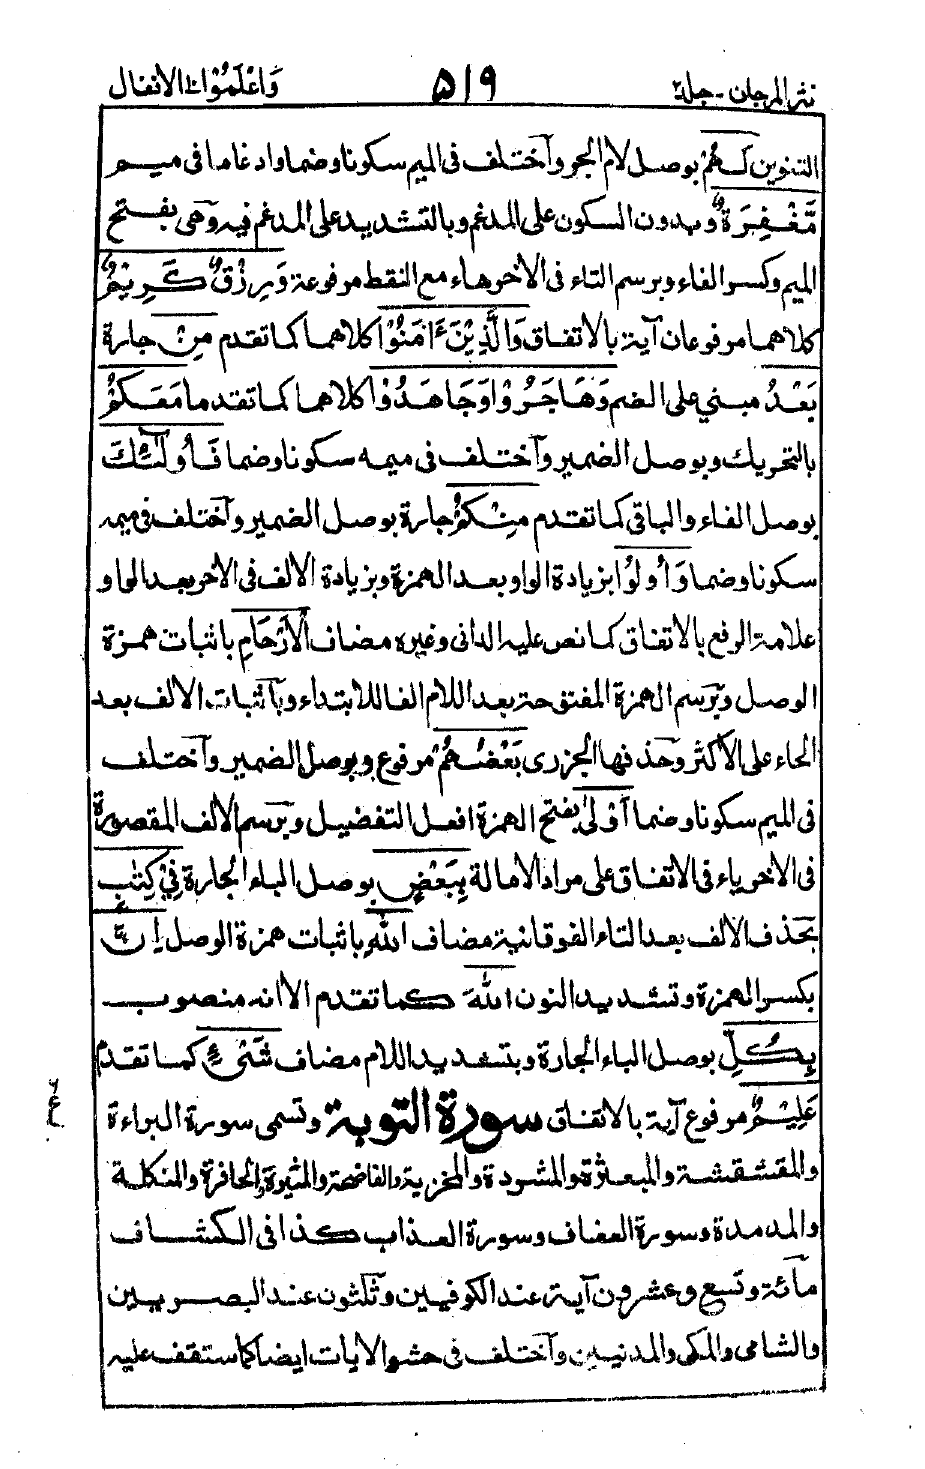 نثر المرجان - جلد ٢ ٥١٩ وَاعْلَمُوْٓا ١٠ الانفال
التنوين لَهُمْ بوصل لام الجر وآختلف فى الميم سكونا وضما وادغاما فى ميم
مَّغْفِرَةٌ وبدون السكون على المدغم وبالتشديد على المدغم فيه وهى بفتح
الميم وكسر الفاء وبرسم التاء فى الآخر هاء مع النقط مرفوعة وَرِزْقٌ كَرِيْمٌ
كلاهما مرفوعان آية بالاتفاق وَالَّذِيْنَ ءَامَنُوْا كلاهما كما تقدم مِنْ جارة
بَعْدُ مبني على الضم وَهَاجَرُوْا وَجَاهَدُوْا كلاهما كما تقدم مَا مَعَكُمْ
بالتحريك وبوصل الضمير وآختلف فى ميمه سكونا وضما فَأُولٰٓئِكَ
بوصل الفاء والباقى كما تقدم مِنْكُمْ جارة بوصل الضمير وآختلف فى ميمه
سكونا وضما وَأُولُوْا بزيادة الواو بعد الهمزة وبزيادة الالف فى الآخر بعد الواو
علامة الرفع بالاتفاق كما نص عليه الدانى وغيره مضاف الْأَرْحَامِ باثبات همزة
الوصل وبرسم الهمزة المفتوحة بعد اللام الفا للابتداء وبآثبات الالف بعد
الحاء على الاكثر وحذفها الجزرى بَعْضُهُمْ مرفوع وبوصل الضمير وآختلف
فى الميم سكونا وضما أَوْلٰى بفتح الهمزة افعل التفضيل وبرسم الالف المقصورة
فى الآخر ياء فى الاتفاق على مراد الامالة بِبَعْضٍ بوصل الباء الجارة فِيْ كِتٰبِ
بحذف الالف بعد التاء الفوقانية مضاف اللهِ باثبات همزة الوصل اِنَّ
بكسر الهمزة وتشديد النون اللهَ كما تقدم الا انه منصوب
بِكُلِّ بوصل الباء الجارة وبتشديد اللام مضاف شَىْءٍ كما تقدم
عَلِيْمٌ مرفوع آية بالاتفاق سورة التوبة وتسمى سورة البراءة
والمقشقشة والمبعثرة والمشردة والمخزية والفاضحة والمثيرة والحافرة والمنكلة
والمدمدة وسورة العذاب كذا فى الكشاف
مآئة وتسع وعشرون آية عند الكوفيين وثلثون عند البصريين
والشامى والمكى والمدنيين وآختلف فى حشو الآيات ايضا كما ستقف عليه